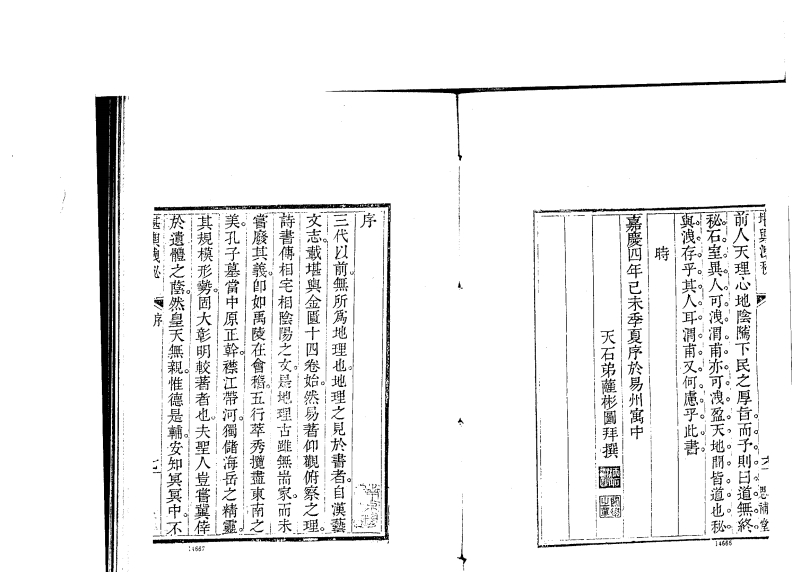 堪輿洩秘
六
思補堂
前人天理心地陰隲下民之厚旨而予則曰道無終
秘石室異人可洩渭甫亦可洩盈天地間皆道也秘
與洩存乎其人耳渭甫又何慮乎此書
時
嘉慶四年己未季夏序於易州寓中
天石弟薩彬圖拜撰
14666
序
三代以前。無所爲地理也。地理之見於書者。自漢藝
文志。載堪輿金匱十四卷始。然易著仰觀俯察之理。
詩書傳相宅相陰陽之文。是地理古雖無耑家。而未
嘗廢其義。卽如禹陵在會稽。五行萃秀。攬盡東南之
美。孔子墓當中原正幹。襟江帶河。獨儲海岳之精靈。
其規模形勢。固大彰明較著者也。夫聖人豈嘗冀倖
於遺體之蔭。然皇天無親。惟德是輔。安知冥冥中。不
堪輿洩秘
序
七
14667